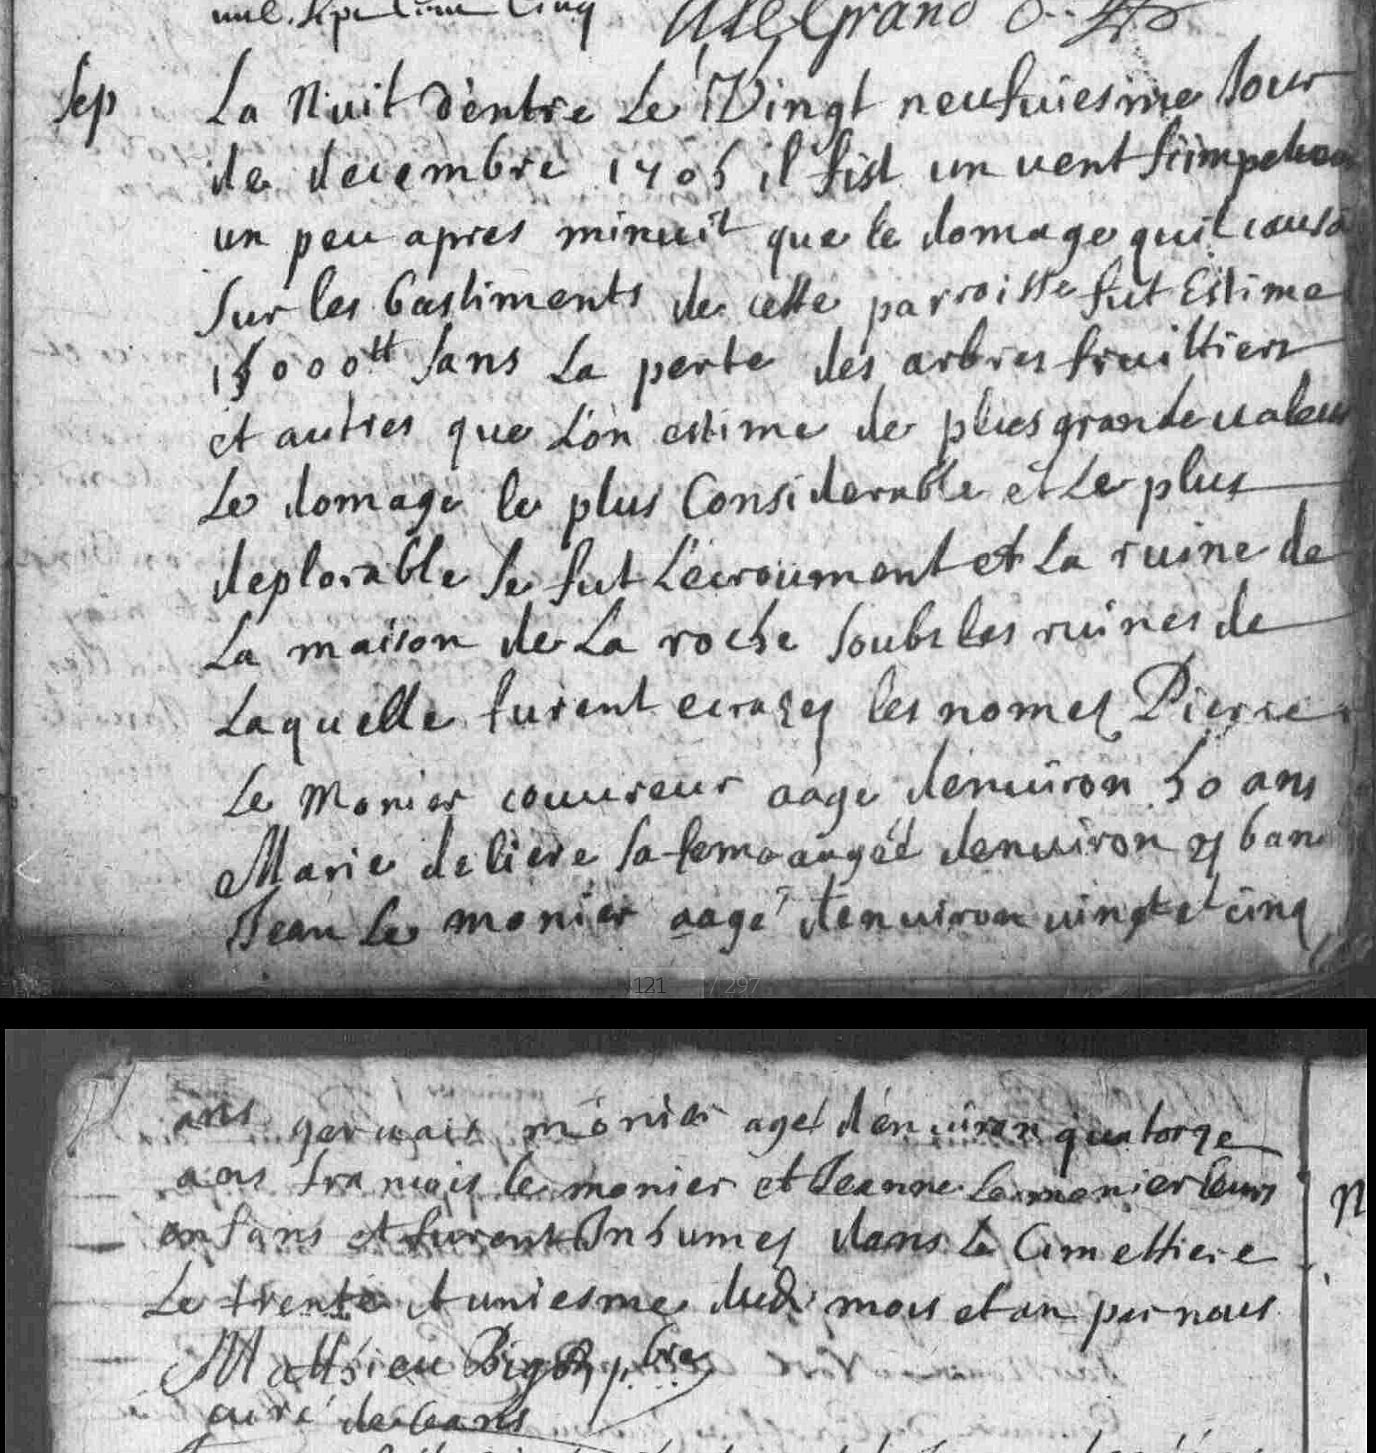 mil Sept Cent Cinq
Sep La Nuit dèntre Le Vingt neufuiesme Jour
de decembre 1705 il fist un vent si impetueux
un peu apres minuit que le domage quil causa
Sur les bastiments de cette parroisse fut Estimé
15000tt sans La perte des arbres fruittiers
et autres que Lòn estime de plus grande valeur
Le domage le plus Considerable et Le plus
deplorable se fut L'écroument et La ruine de
La maison de La roche soubs les ruines de
Laquelle furent ecrazes les nomes Pierre
Le Monier couureur aage denuiron 50 ans
Marie deliere sa feme aagéé denuiron ans
Jean Le monier aagé denuiron uingt et cinq
121 / 297
ans geruais monier agé dénuiron quatorze
ans francois le monier et Jeanne Le monier leurs
enfans et furent Inhumes dans Le Cimettiere
Le trente et uniesme dud. mois et an par nous
Matthieu pbre
curé de